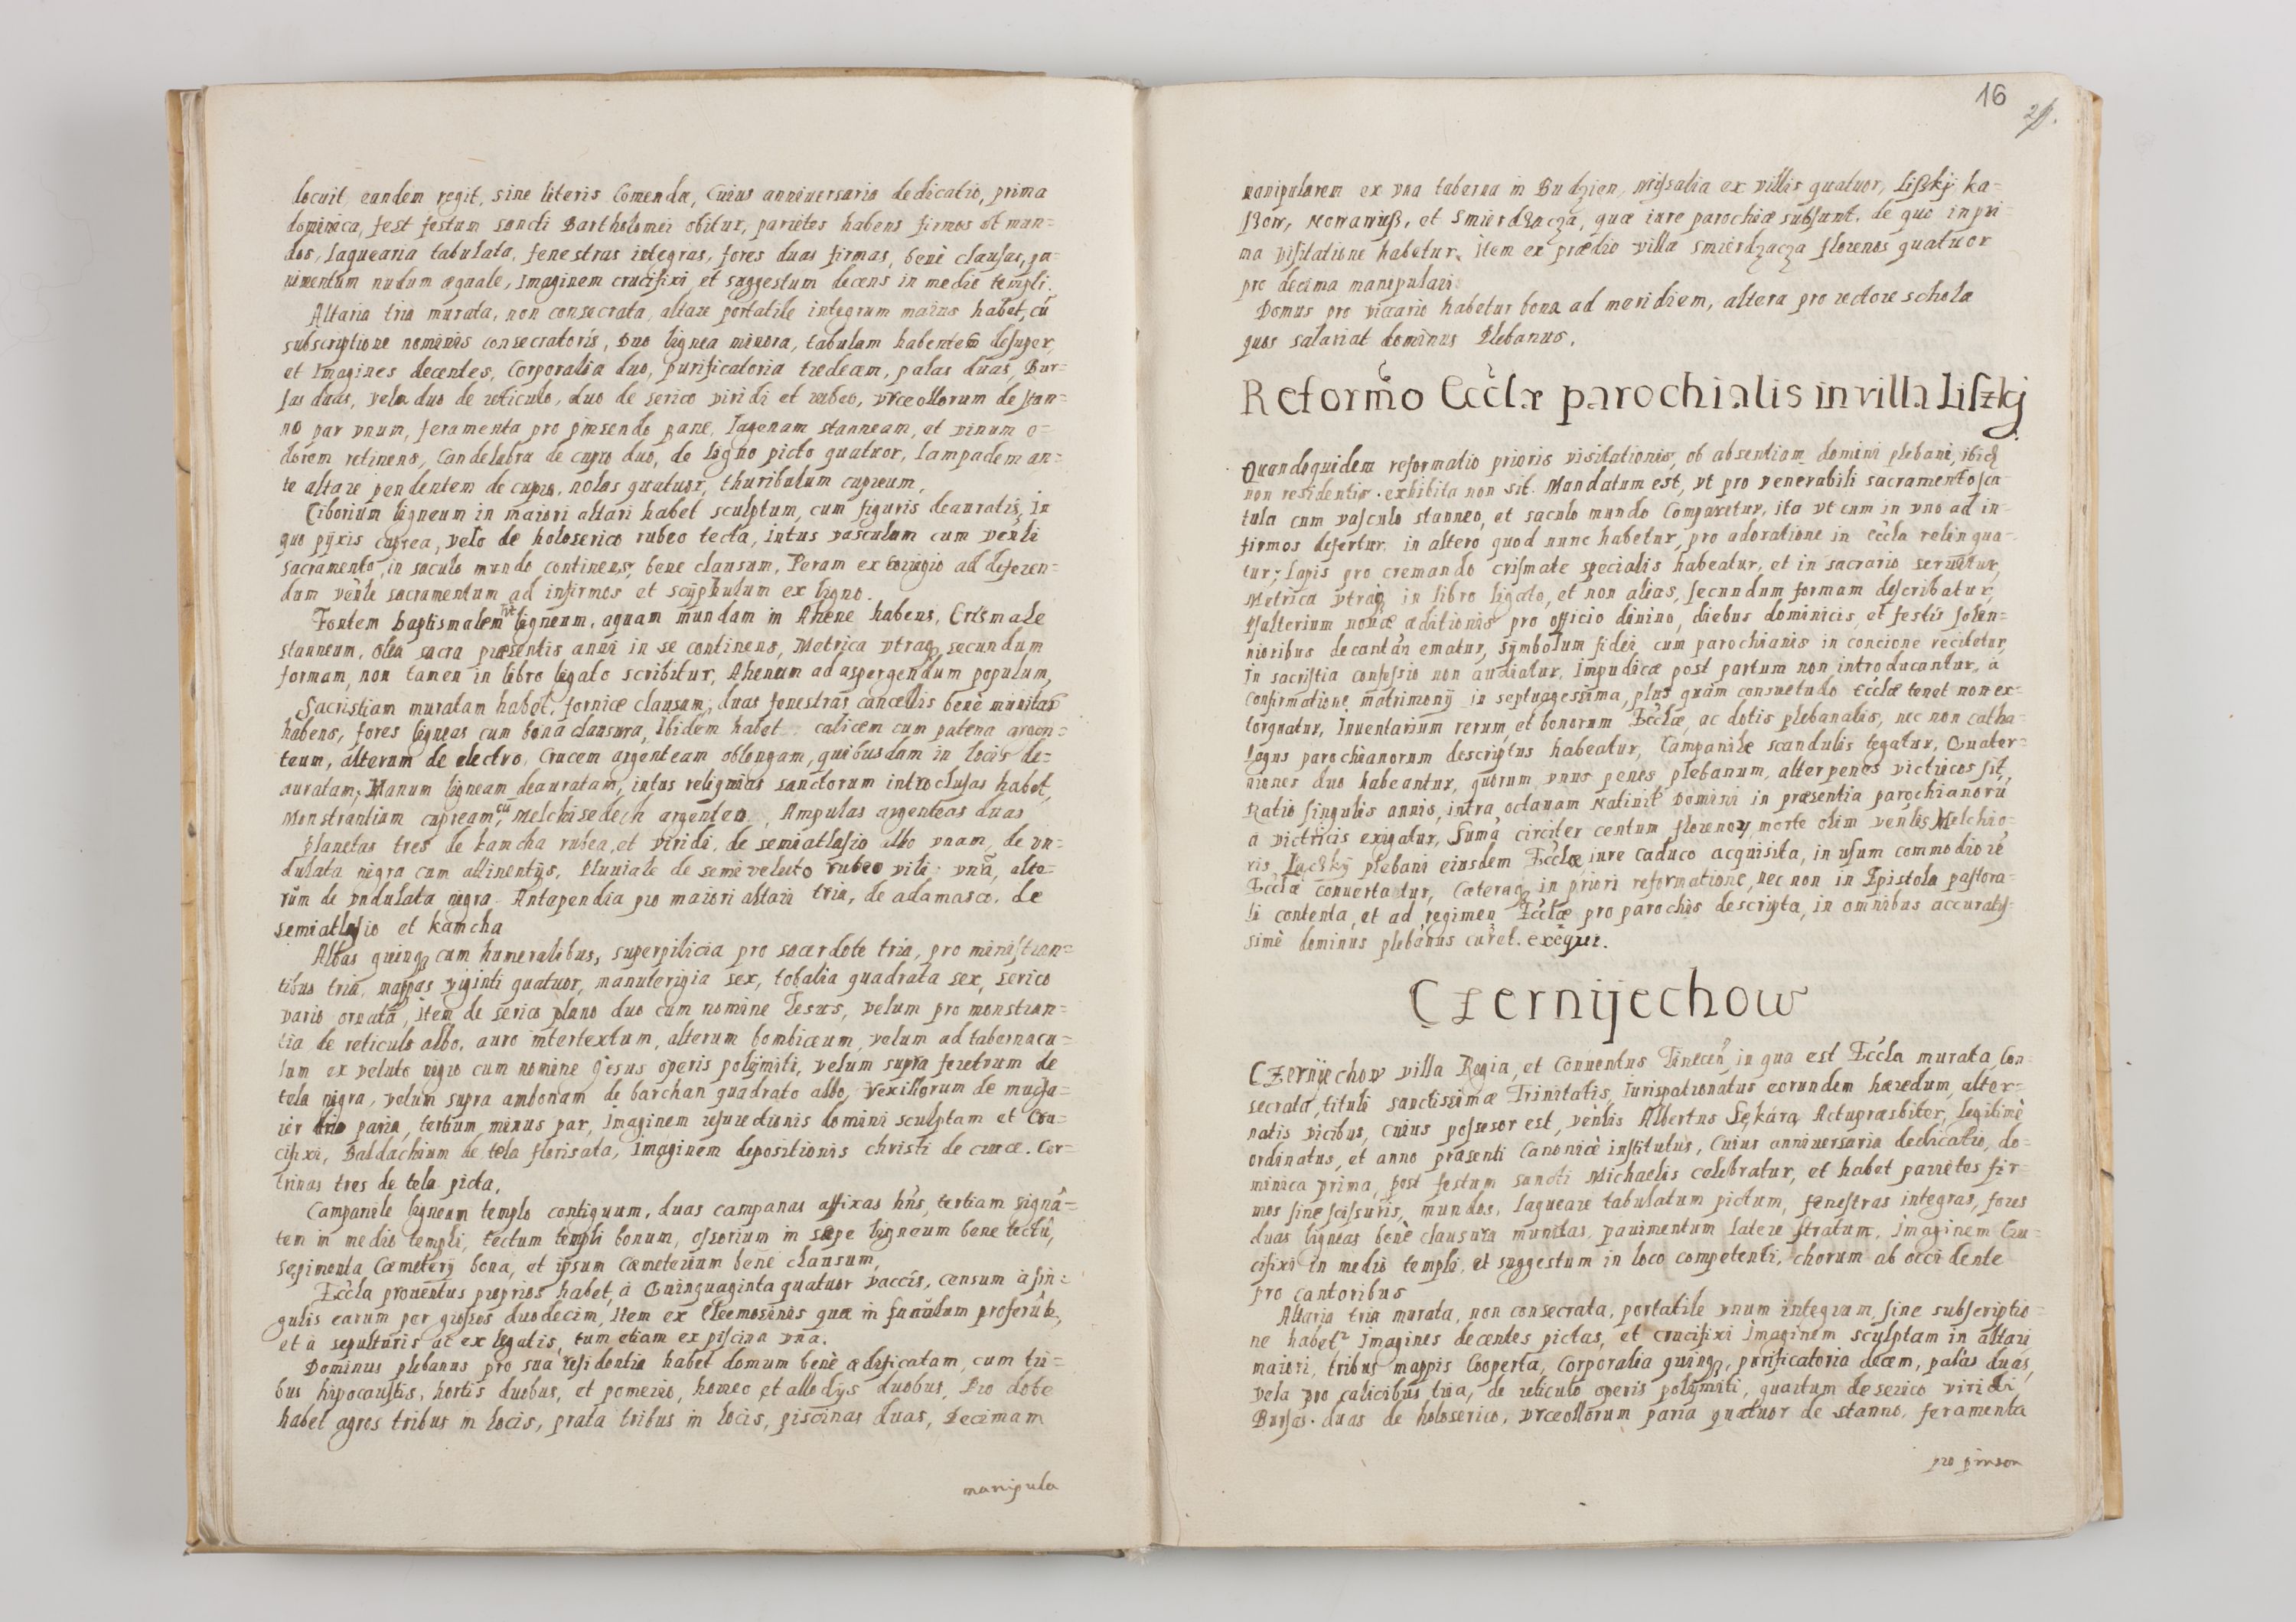 locuit, eandem regit, sine literis Comenda, Cuius anniuersaria dedicatio, prima
dominica, fest festum sancti Bartholomei obitur, parietes habens firmos et mun=
dos, laquearia tabulata, fenestras integras, fores duas firmas, benè clausas, pa=
uimentum nudum æquale, Imaginem crucifixi, et suggestum decens in medio templi.
Altaria tria murata, non consecrata, altare portatile integrum maius habet, cũ
subscriptione nominis consecratoris, Duo lignea minora, tabulam habentem desuper,
et Imagines decentes, Corporalia duo, purificatoria tredecem, palas duas, Bur=
sas duas, vela duo de reticulo, duo de serico viridi et rubeo, vrceollorum de stan=
no par vnum, feramenta pro pinsendo pane, lagenam stanneam, et vinum o=
dorem retinens, Candelabra de cupro duo, de ligno picto quatuor, lampadem an=
te altare pendentem de cupro, nolas quatuor, thuribulum cupreum,
Ciborium ligneum in maiori altari habet sculptum, cum figuris deauratis, in
quo pÿxis cuprea, velo de holoserico rubeo tecta, intus vasculum cum venli
sacramento, in saculo mundo continens, bene clausum, Peram ex ad deferen=
dum venle sacramentum ad infirmos et scÿphulum ex ligno.
Fontem baptismalem ligneum, aquam mundam in Ahene habens, Crismale
stanneum, olea sacra præsentis anni in se continens, Metrica vtraq secundum
formam, non tamen in libro ligato scribitur, Ahenum ad aspergendum populum,
Sacristiam muratam habet, fornice clausam, duas fenestras cancellis benè munitas
habens, fores ligneas cum bona clausura, Ibidem habet calicem cum patena argen=
teum, alterum de electro, Crucem argenteam oblongam, quibusdam in locis de=
auratam, Manum ligneam deauratam, intus reliquias sanctorum introclusas habet,
Monstrantiam cupream, cũ Melchisedech argenteo, Ampulas argenteas duas
Planetas tres de kamcha rubea, et viridi, de semiatlasio albo vnam, de vn=
dulata nigra cum attinentijs, Pluuiale de semiveluto rubeo vili vnũ, alte=
rũm de vndulata nigra. Antependia pro maiori altari tria, de adamasco, de
semiatlasio et kamcha
Albas quinq cum humeralibus, superpilicia pro sacerdote tria, pro ministran=
tibus tria, mappas viginti quatuor, manuterigia sex, tobalia quadrata sex, serico
vario ornata, item de serico plano duo cum nomine Iesus, velum pro monstran=
tia de reticulo albo, auro intertextum, alterum bombiceum, velum ad tabernacu=
lum ex veluto nigro cum nomine Jesus operis polÿmiti, velum supra feretrum de
tela nigra, velum supra ambonam de barchan quadrato albo, Vexillorum de mucha=
ier tria paria, tertium minus par, Imaginem resurectionis domini sculptam et Cru=
cifixi, Baldachium de tela florisata, Imaginem depositionis christi de cruce. Cor=
trinas tres de tela picta,
Campanile ligneum templo contiguum, duas campanas affixas hñs, tertiam signã=
tem in medio templi, tectum templi bonum, ossorium in sepe ligneum bene tectũ,
Sepimenta Cæmeterÿ bona, et ipsum Cæmeterium benè clausum,
Eccła prouentus proprios habet, à Quinquaginta quatuor vaccis, censum à sin=
gulis earum per grossos duodecim, Item ex Eleemosinis quæ in proferũt,
et à sepulturis ac ex legatis, tum etiam ex piscina vna.
Dominus plebanus pro sua residentia habet domum benè ædificatam, cum tri=
bus hipocaustis, hortis duobus, et pomerio, horreo et allodÿs duobus, Pro dote
habet agros tribus in locis, prata tribus in locis, piscinas duas, Decimam
manipula
16
manipularem ex vna taberna in Budzien, Missalia ex villis quatuor, Liszkÿ, ka=
szow, Nowawieß, et Smierdzacza, quæ iure parochiæ subsunt, de quo in pri=
ma visitatione habetur. Item ex prædio villa Smierdzacza florenos quatuor
pro decima manipulari
Domus pro vicario habetur bona ad meridiem, altera pro rectore schola
quos salariat dominus Plebanus.
Reformõ Eccłæ parochialis in villa Liszkj
Quandoquidem reformatio prioris visitationis, ob absentiam domini plebani, ibidẽ
non residentis. exhibita non sit. Mandatum est, vt pro venerabili sacramento sca=
tula cum vasculo stanneo, et saculo mundo Comparetur, ita vt cum in vno ad in=
firmos defertur, in altero quod nunc habetur, pro adoratione in eccła relinqua=
tur; Lapis pro cremando crismate specialis habeatur, et in sacrario seruetur,
Metrica vtraq in libro ligato, et non alias, secundum formam describatur,
Psalterium nouæ æditionis pro officio diuino, diebus dominicis, et festis solen=
nioribus decantan ematur, Symbolum fidei, cum parochianis in concione recitetur,
In sacristia confessio non audiatur, Impudicæ post partum non introducantur, à
Confirmatione matrimonÿ in septuagesima, plus quàm consuetudo Eccłæ tenet non ex=
torquatur, Inuentarium rerum, et bonorum Eccłæ, ac dotis plebanalis, nec non catha=
logus parochianorum descriptus habeatur, Campanile scandulis tegatur, Quater=
niones duo habeantur, quorum vnus penes plebanum, alter penes victricos sit,
Ratio singulis annis, intra octauam Natiuit Domini in præsentia parochianorũ
à victricis exigatur, Suma circiter centum florenoɽ, morte olim venlis Melchio=
ris plebani eiusdem Eccłæ iure caduco acquisita, in vsum commodiorẽ
Eccłæ conuertatur, Cæteraq in priori reformatione, nec non in Epistola pastora=
li contenta, et ad regimen Eccłæ pro parochis descripta, in omnibus accuratis=
simè dominus plebanus curet. exequi.
Czernijechow
Czernÿechow villa Regia, et Conuentus Tinecen, in qua est Eccła murata, con=
secrata, tituli sanctissimæ Trinitatis, Iurispatronatus eorundem hæredum, alter=
natis vicibus, cuius possesor est, venlis Albertus Sękára Actupræsbiter, legitimè
ordinatus, et anno præsenti Canonicè institutus, Cuius anniuersaria dedicatio, do=
minica prima, post festum sancti Michaelis celebratur, et habet parietes fir=
mos sine scissuris, mundos, laqueare tabulatum pictum, fenestras integras, fores
duas ligneas benè clausura munitas, pauimentum latere stratum, Imaginem Cru=
cifixi in medio templi, et suggestum in loco competenti, chorum ab occidente
pro cantoribus
Altaria tria murata, non consecrata, portatile vnum integrum, sine subscriptio=
ne habet Imagines decentes pictas, et crucifixi Imaginem sculptam in altari
maiori, tribus mappis Cooperta, Corporalia quinq, purificatoria decem, palas duas,
Vela pro calicibus tria, de reticulo operis polÿmiti, quartum de serico viridi
Bursas duas de holoserico, vrceollorum paria quatuor de stanno, feramenta
pro pinsen